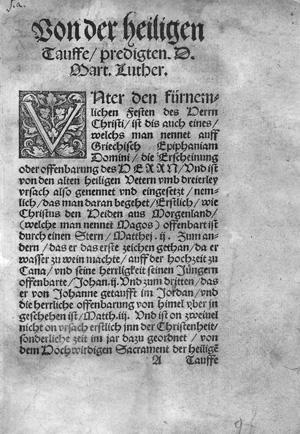 Von der heiligen
Tauffe/ predigten. D.
Mart. Luther.
VNter den fürnem-
lichen Festen des Herrn
Christi/ ist dis auch eines/
welchs man nennet auff
Griechisch Epiphaniam
Domini/ die Erscheinung
oder offenbarung des HERRN/ Vnd ist
von den alten heiligen Vetern vmb dreierley
vrsach also genennet vnd eingesetzt/ nem-
lich/ das man daran begehet/ Erstlich/ wie
Christus den Heiden aus Morgenland/
(welche man nennet Magos) offenbart ist
durch einen Stern/ Matthei. ij. Zum an-
dern/ das er das erste zeichen gethan/ da er
wasser zu wein macht/ auff der hochzeit zu
Cana/ vnd seine herrligkeit seinen Jüngern
offenbarte/ Johan. ij. Vnd zum dritten/ das
er von Johanne getaufft im Jordan/ vnd
die herrliche offenbarung von himel vber in
geschehen ist/ Matth. iij. Vnd ist on zweiuel
nicht on vrsach erstlich jnn der Christenheit/
sonderliche zeit im jar dazu geordnet/ von
dem Hochwirdigen Sacrament der heiligē
A Tauffe